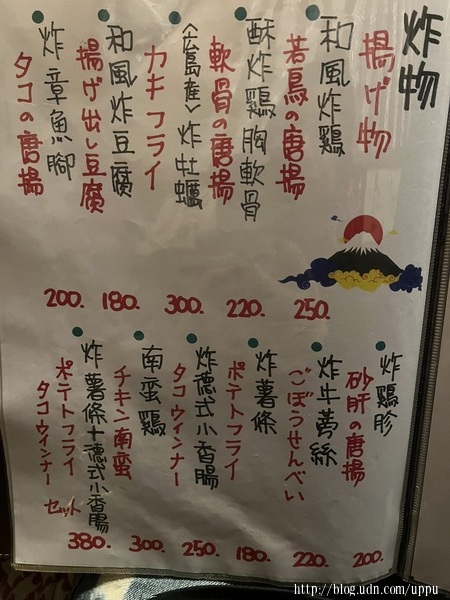 炸物
揚げ物
和風炸鷄
若鳥の唐揚
250.
酥炸鷄胸軟骨
軟骨の唐揚
220.
(広島産)炸牡蠣
カキフライ
300.
和風炸豆腐
揚げ出し豆腐
180.
炸章魚腳
タコの唐揚
200.
炸鷄胗
砂肝の唐揚
200.
炸牛蒡絲
ごぼうせんべい
220.
炸薯條
ポテトフライ
180.
炸德式小香腸
タコウィンナー
250.
南蛮鷄
チキン南蛮
300.
炸薯條十德式小香腸
ポテトフライ
タコウィンナー セット
380.
http://blog.udn.com/uppu